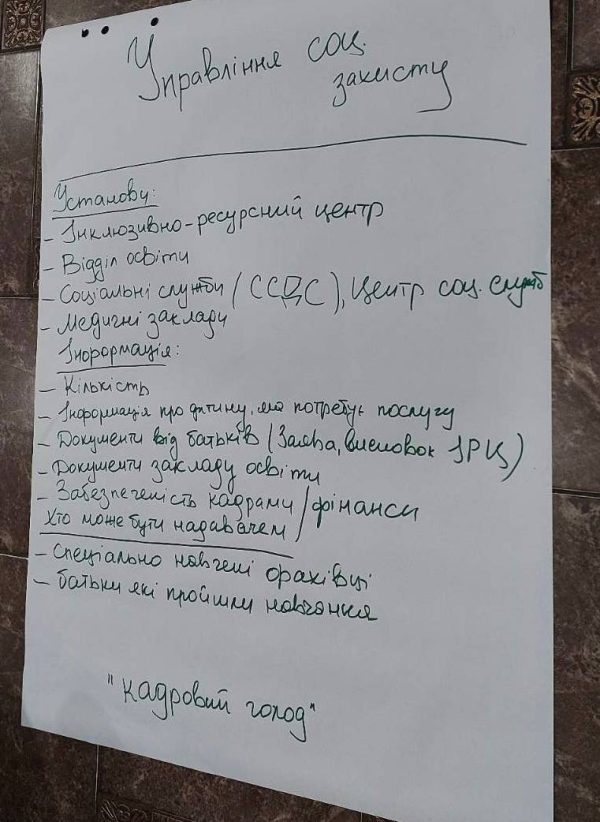 Управління соц.
захисту
Установи:
- Інклюзивно-ресурсний центр
- Відділ освіти
- Соціальні служби (ССДС), Центр соц. служб
- Медичні заклади
Інформація:
- Кількість
- Інформація про дитину, яка потребує послугу
- Документи від батьків (Заява, висновок ІРЦ)
- Документи закладу освіти
- Забезпеченість кадрами/фінанси
Хто може бути надавачем/
- Спеціально навчені фахівці
- батьки які пройшли навчання
"кадровий голод"